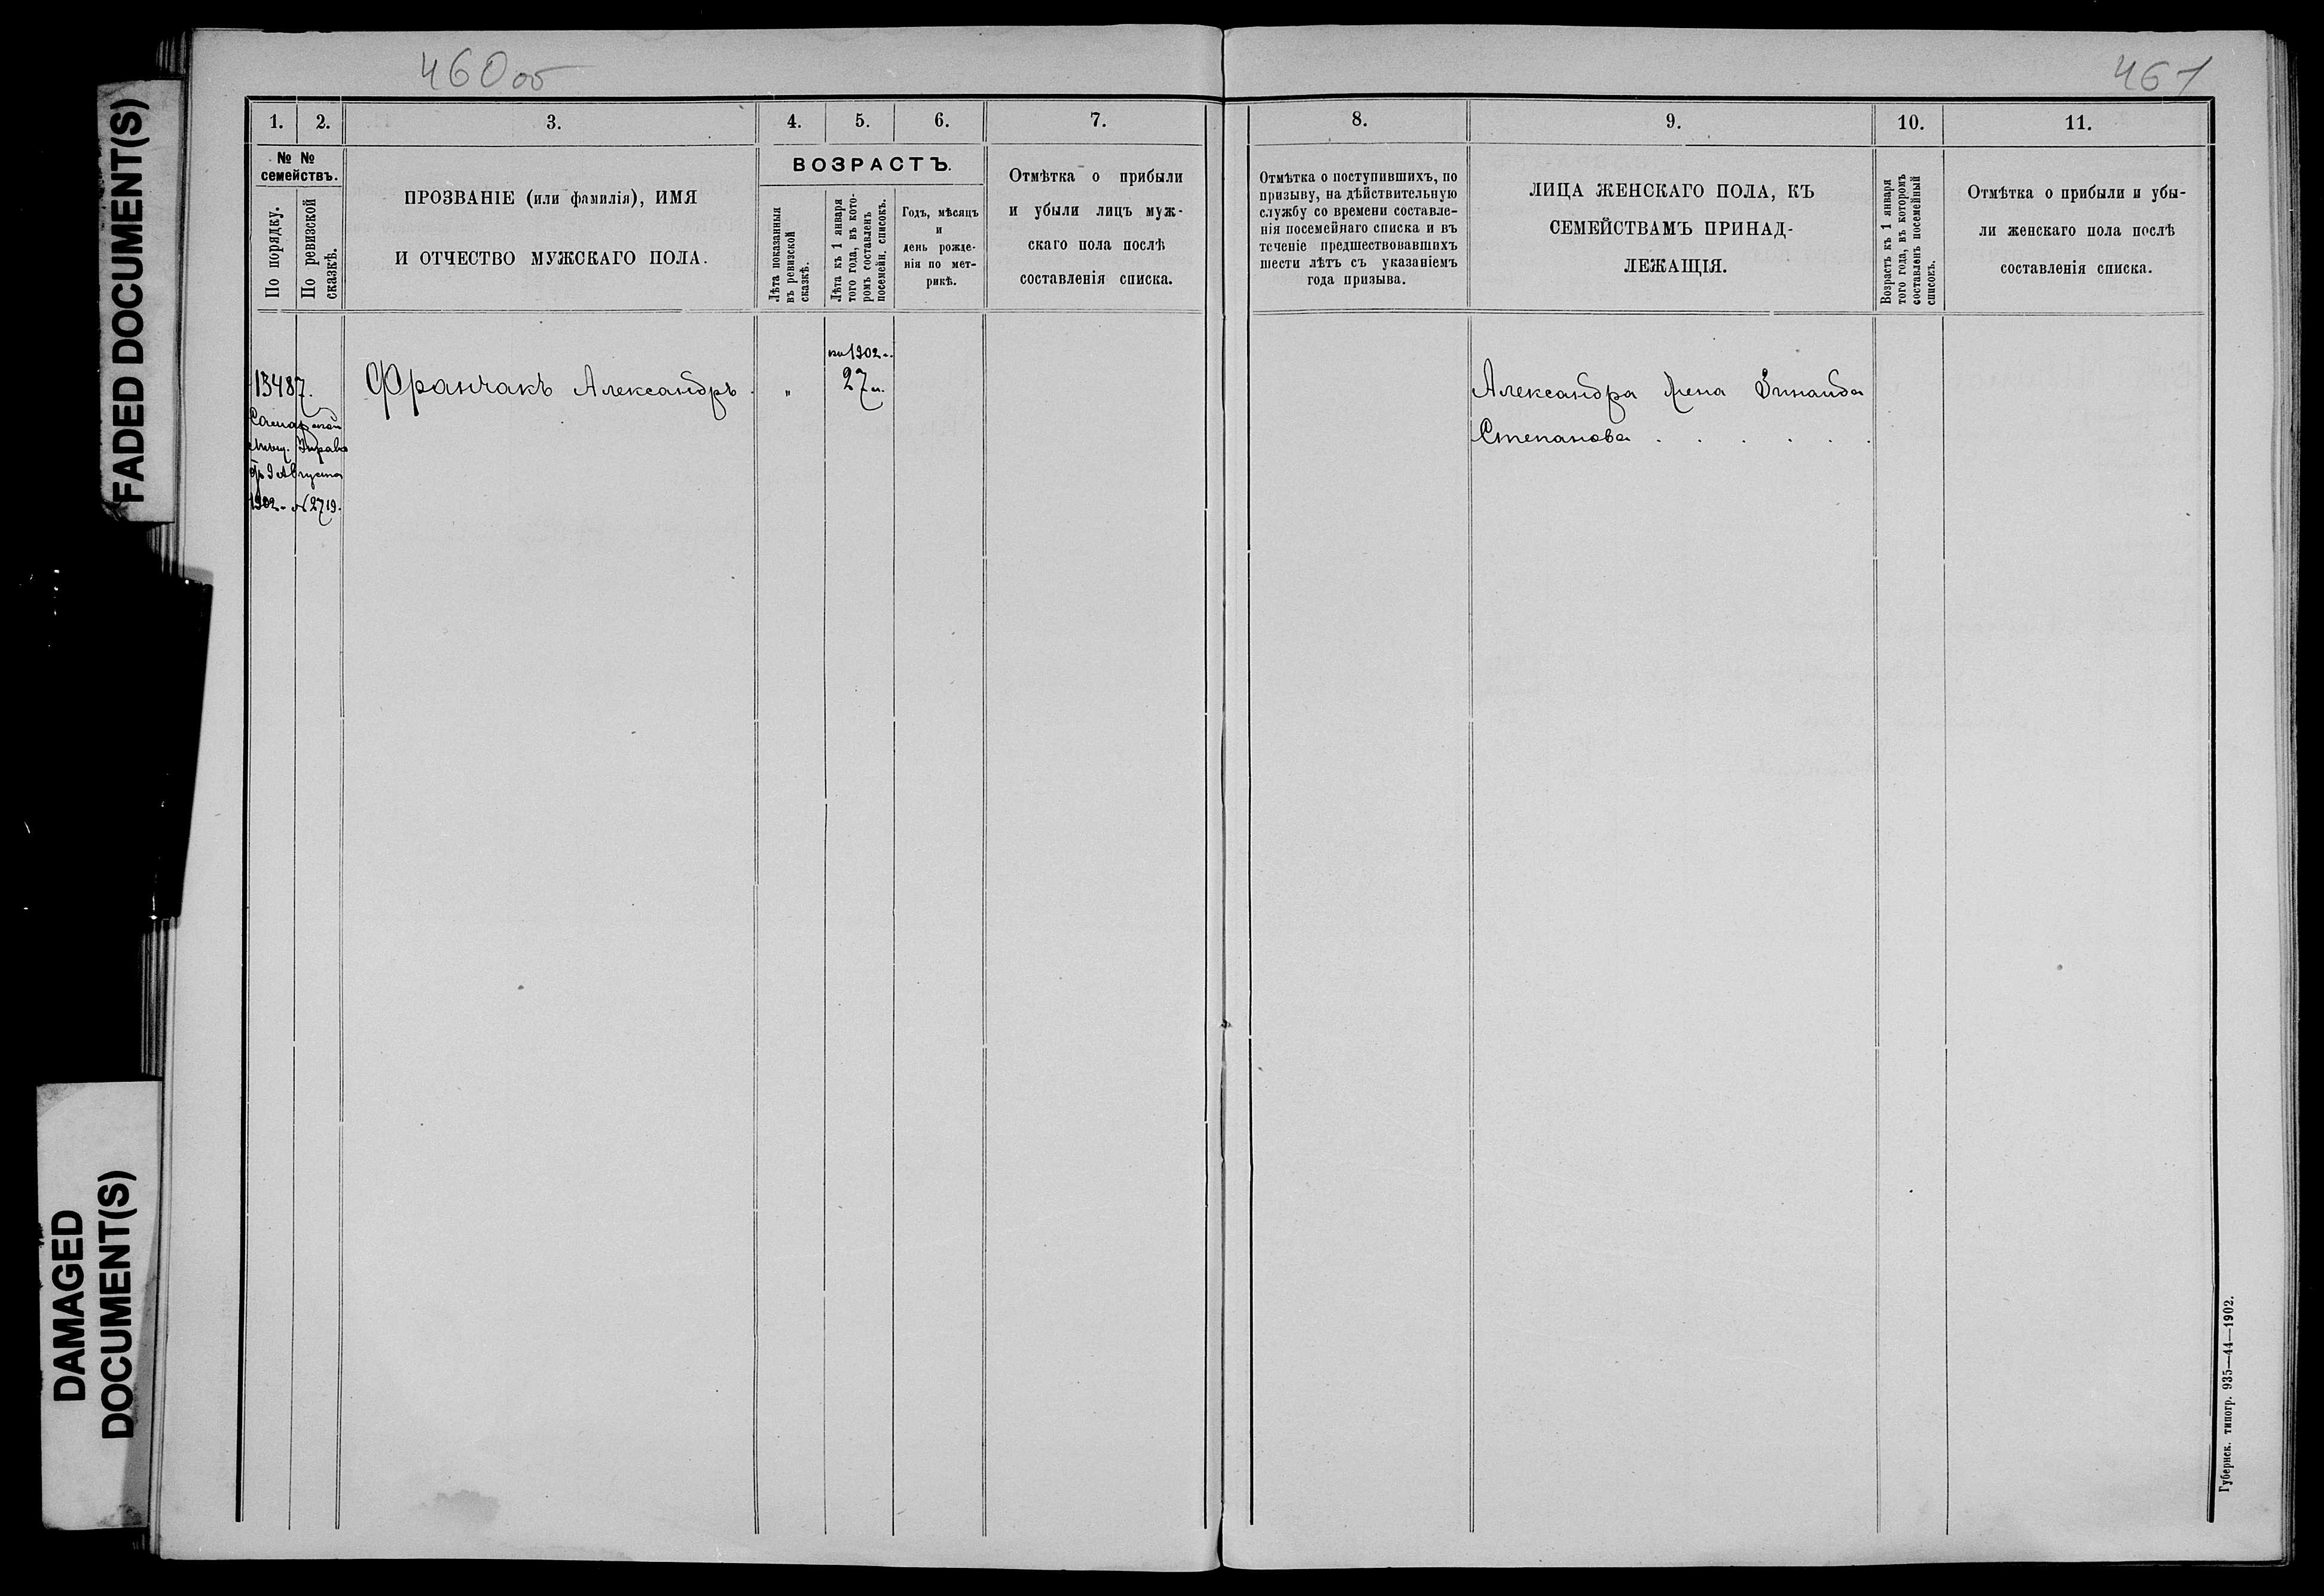 460 об
461
FADED DOCUMENT(S)
DAMAGED
DOCUMENT(S)
1.
2.
3.
4.
5.
6.
7.
№ №
семействъ.
По порядку.
По ревизской
сказкѣ.
ПРОЗВАНІЕ (или фамилія), ИМЯ
И ОТЧЕСТВО МУЖСКАГО ПОЛА.
ВОЗРАСТЪ.
Лѣта показанныя
въ ревизской
сказкѣ.
Лѣта къ 1 января
того года, въ кото-
ромъ составленъ
посемейн. списокъ.
Годъ, мѣсяцъ
и
день рожде-
нія по мет-
рикѣ.
Отмѣтка о прибыли
и убыли лицъ муж-
скаго пола послѣ
составленія списка.
13487.
Самарской
мѣщ. Управы
9 Августа
1902 № 2719.
Франчакъ Александръ
"
1902
27
8.
9.
10.
11.
Отмѣтка о поступившихъ, по
призыву, на дѣйствительную
службу со времени составле-
нія посемейнаго списка и въ
теченіе предшествовавшихъ
шести лѣтъ съ указаніемъ
года призыва.
ЛИЦА ЖЕНСКАГО ПОЛА, КЪ
СЕМЕЙСТВАМЪ ПРИНАД-
ЛЕЖАЩІЯ.
Возрастъ къ 1 января
того года, въ которомъ
составленъ посемейный
списокъ.
Отмѣтка о прибыли и убы-
ли женскаго пола послѣ
составленія списка.
Александра жена Зинаида
Степанова . . . . . .
Губернск. типогр. 935—44—1902.